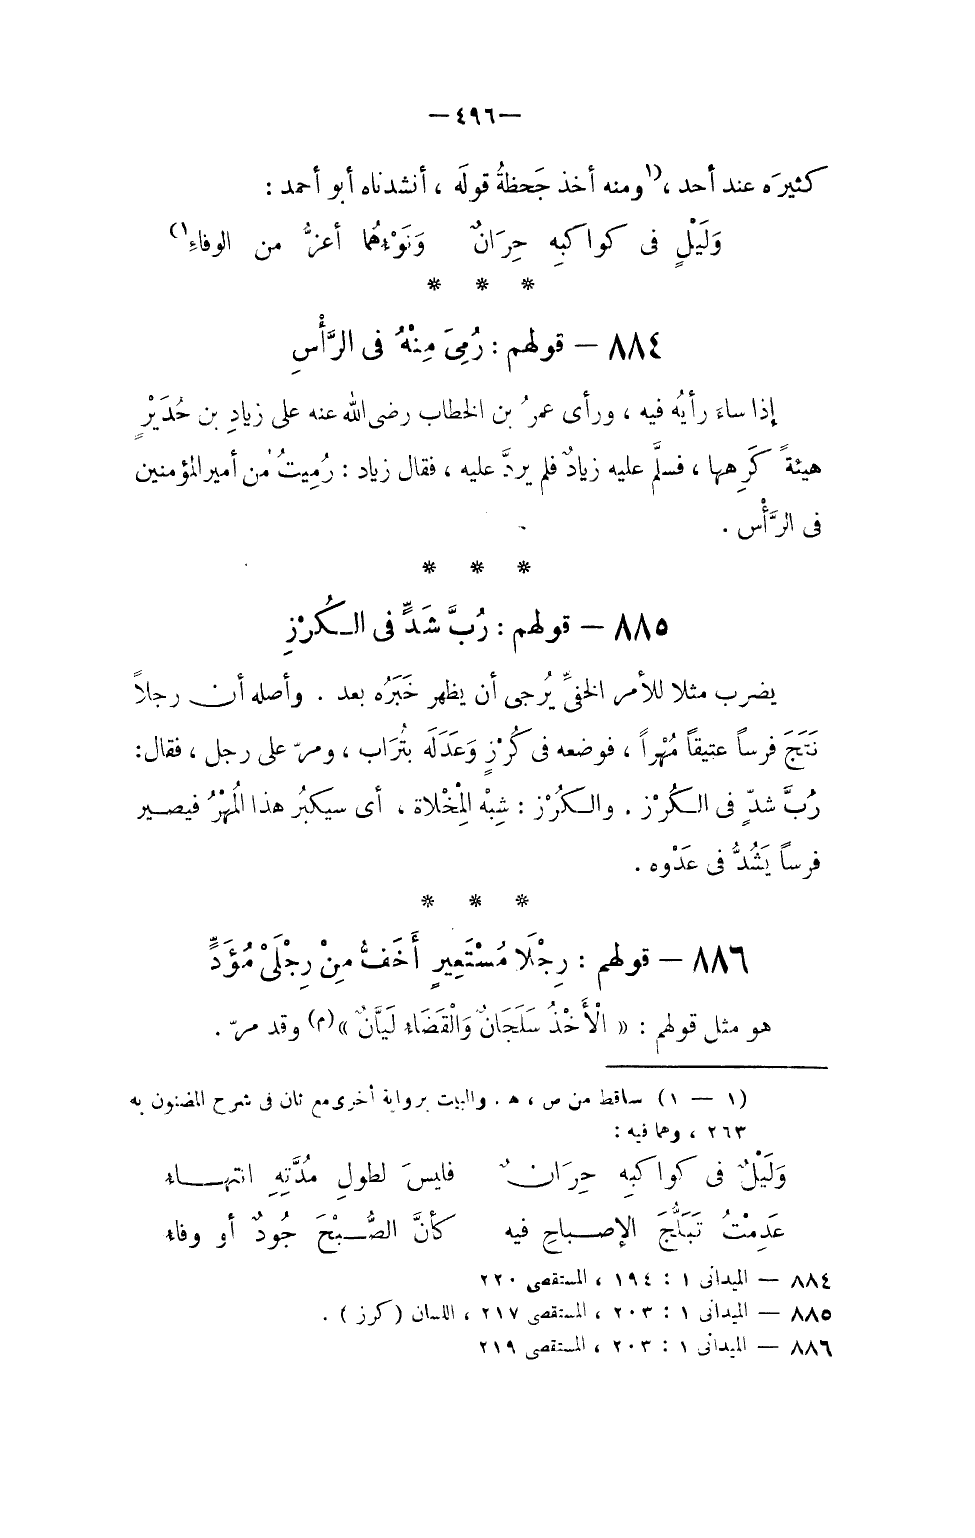 —٤٩٦—
كثيرَه عند أحد ،(١ ومنه أخذ جَحظةُ قولَه ، أنشدناه أبو أحمد :
وَلَيْلٍ فى كواكبِه حِرَانٌ وَنَوْءهُما أعزُّ من الوفاءِ١)
* * *
٨٨٤ — قولهم : رُمِىَ مِنْهُ فى الرَّأْسِ
إذا ساءَ رأيُه فيه ، ورأى عمرُ بن الخطاب رضى الله عنه على زيادِ بن حُدَيْرٍ
هيئةً كَرِهها ، فسلَّم عليه زيادٌ فلم يردَّ عليه ، فقال زياد : رُمِيتُ من أمير المؤمنين
فى الرَّأْس .
* * *
٨٨٥ — قولهم : رُبَّ شَدٍّ فى الكُرْزِ
يضرب مثلا للأمر الخفىِّ يُرجى أن يظهر خَبَرُه بعد . وأصله أن رجلاً
نَتَجَ فرساً عتيقاً مُهْراً ، فوضعه فى كُرْزٍ وَعَدَلَه بتُرَاب ، ومرّ على رجل ، فقال :
رُبَّ شدٍّ فى الكُرْز . والكُرْز : شِبْه المِخْلاة ، أى سيكبُر هذا المُهْرُ فيصير
فرساً يَشُدُّ فى عَدْوه .
* * *
٨٨٦ — قولهم : رِجْلَا مُسْتَعِيرٍ أَخَفُّ مِنْ رِجْلَىْ مُؤَدٍّ
هو مثل قولهم : « الْأَخْذُ سَلَجَانٌ وَالْقَضَاء لَيَّانٌ »(م) وقد مرّ .
(١ — ١) ساقط من ص ، ه . والبيت برواية أخرى مع ثان فى شرح المضنون به
٢٦٣ ، وهما فيه :
وَلَيْلٌ فى كواكبِه حِرَانٌ فليسَ لطولِ مُدَّتِهِ انتهاء
عَدِمْتُ تَبَلُّجَ الإصباحِ فيه كأنَّ الصُّبْحَ جُودٌ أو وفاء
٨٨٤ — الميدانى ١ : ١٩٤ ، المستقصى ٢٢٠
٨٨٥ — الميدانى ١ : ٢٠٣ ، المستقصى ٢١٧ ، اللسان (كرز) .
٨٨٦ — الميدانى ١ : ٢٠٣ ، المستقصى ٢١٩